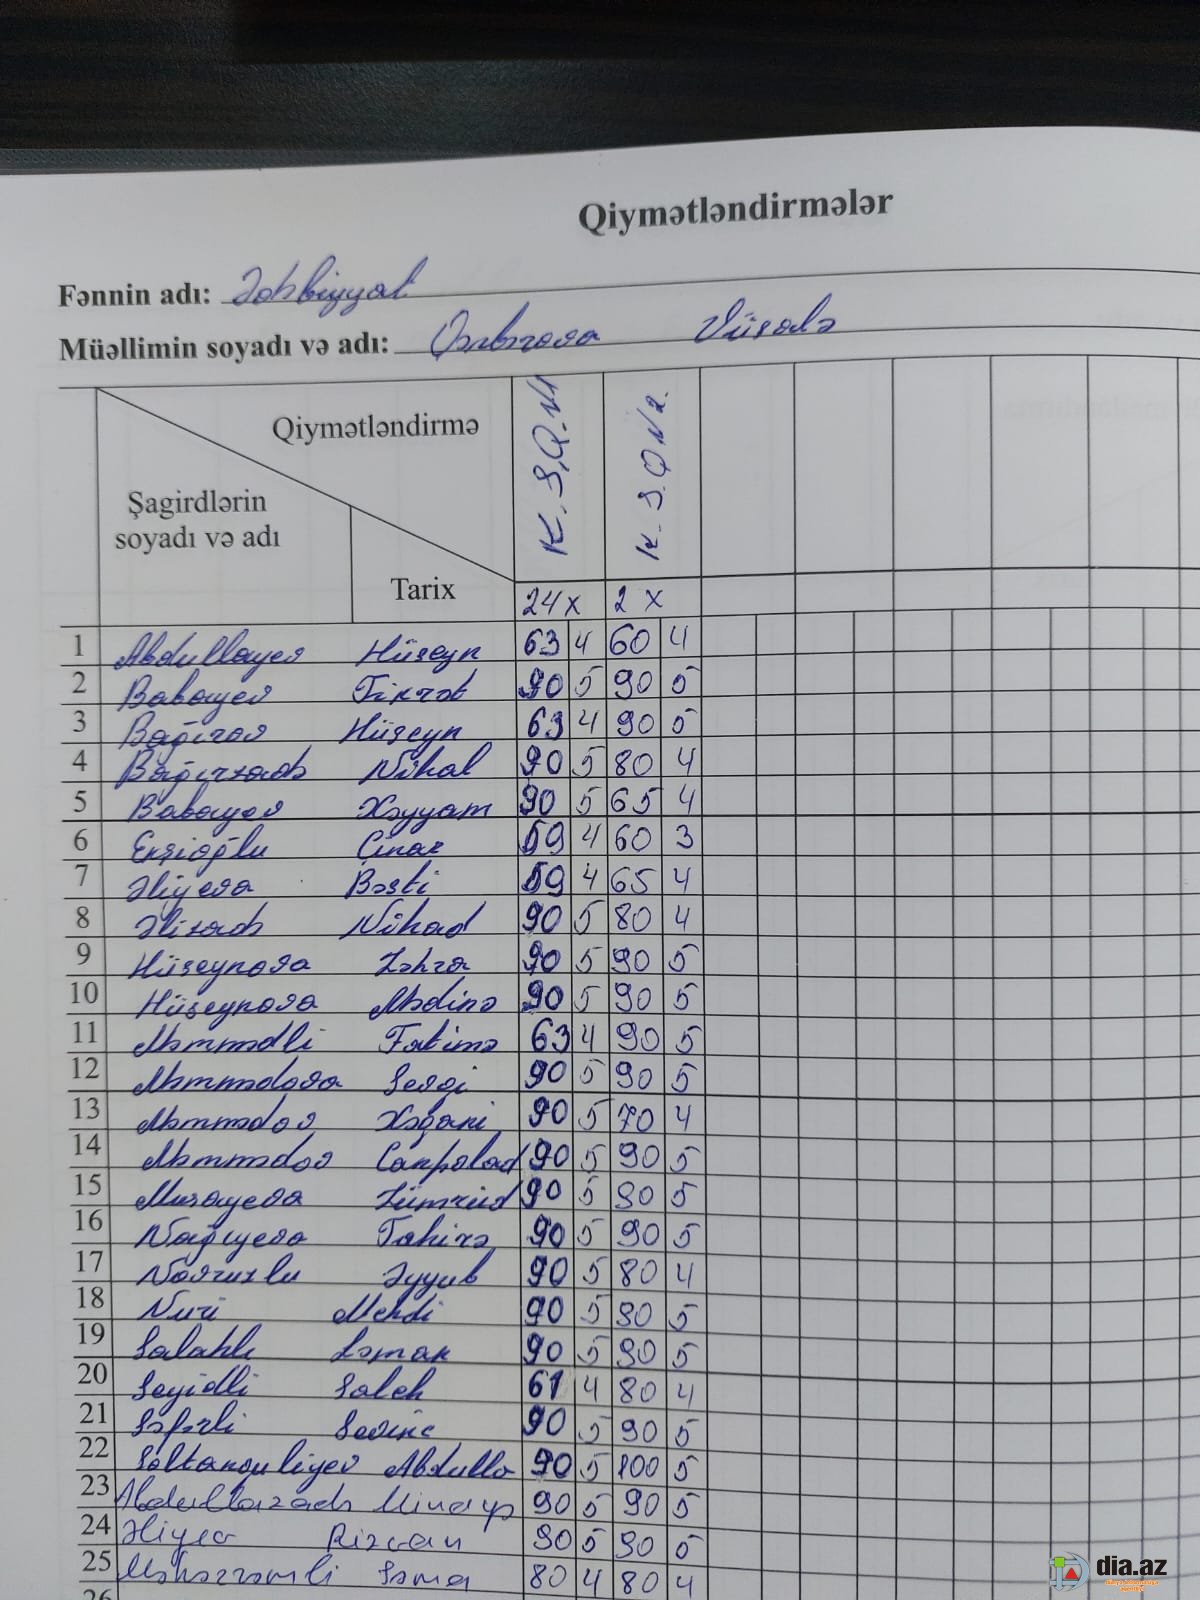 Qiymətləndirmələr
Fənnin adı: Ədəbiyyat
Müəllimin soyadı və adı: Qənbərova Vüsalə
Qiymətləndirmə
Şagirdlərin
soyadı və adı
Tarix
K.S.Q.N1
K.S.Q N2.
24 X 2 X
1 Abdullayev Hüseyn 63 4 60 4
2 Babayev Fikrət 90 5 90 5
3 Bağırov Hüseyn 63 4 90 5
4 Bağırzadə Nihal 90 5 80 4
5 Babayev Xəyyam 90 5 65 4
6 Ekşioğlu Çinar 59 4 60 3
7 Əliyeva Bəsti 59 4 65 4
8 Əlizadə Nihad 90 5 80 4
9 Hüseynova Zəhra 90 5 90 5
10 Hüseynova Mədinə 90 5 90 5
11 Məmmədli Fatimə 63 4 90 5
12 Məmmədova Sevgi 90 5 90 5
13 Məmmədov Xəqani 90 5 70 4
14 Məmmədov Canpolad 90 5 90 5
15 Musayeva Zümrüd 90 5 90 5
16 Nağıyeva Tahirə 90 5 90 5
17 Novruzlu Əyyub 90 5 80 4
18 Nuri Mehdi 90 5 90 5
19 Salahlı Ləman 90 5 90 5
20 Seyidli Saleh 61 4 80 4
21 Səfərli Sevinc 90 5 90 5
22 Soltanquliyev Abdulla 90 5 100 5
23 Abdullazadə Minayə 90 5 90 5
24 Əliyev Rizvan 90 5 90 5
25 Məhərrəmli Səma 80 4 80 4
26
dia.az